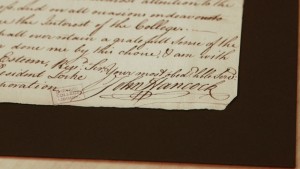 attention to the
and in all measures endeavour to
the Interest of the College
shall ever retain a gratefull Sense of the
done me by this choice, & am with
Esteem, Rev.d Sir Your most obed.t hble Serv.t
sident Locke
John Hancock
poration